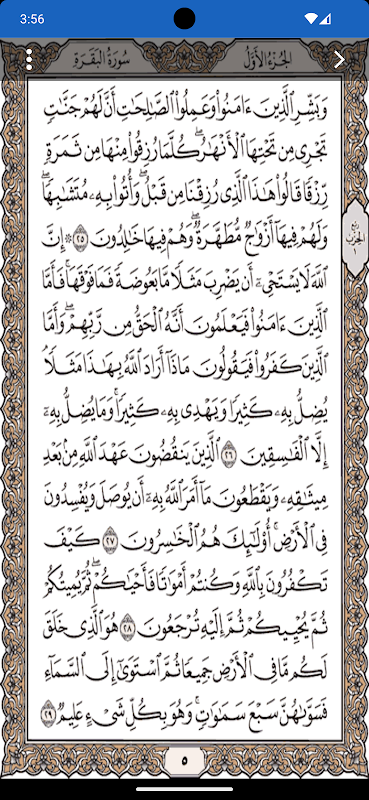 3:56
سُورَةُ البَقَرَةِ
الجُزْءُ الأَوَّلُ
وَبَشِّرِ ٱلَّذِينَ ءَامَنُوا۟ وَعَمِلُوا۟ ٱلصَّـٰلِحَـٰتِ أَنَّ لَهُمْ جَنَّـٰتٍ
تَجْرِى مِن تَحْتِهَا ٱلْأَنْهَـٰرُ ۖ كُلَّمَا رُزِقُوا۟ مِنْهَا مِن ثَمَرَةٍ
رِّزْقًا قَالُوا۟ هَـٰذَا ٱلَّذِى رُزِقْنَا مِن قَبْلُ ۖ وَأُتُوا۟ بِهِۦ مُتَشَـٰبِهًا ۖ
وَلَهُمْ فِيهَآ أَزْوَٰجٌ مُّطَهَّرَةٌ ۖ وَهُمْ فِيهَا خَـٰلِدُونَ ٢٥ ۞ إِنَّ
ٱللَّهَ لَا يَسْتَحْىِۦٓ أَن يَضْرِبَ مَثَلًا مَّا بَعُوضَةً فَمَا فَوْقَهَا ۚ فَأَمَّا
ٱلَّذِينَ ءَامَنُوا۟ فَيَعْلَمُونَ أَنَّهُ ٱلْحَقُّ مِن رَّبِّهِمْ ۖ وَأَمَّا
ٱلَّذِينَ كَفَرُوا۟ فَيَقُولُونَ مَاذَآ أَرَادَ ٱللَّهُ بِهَـٰذَا مَثَلًا ۘ
يُضِلُّ بِهِۦ كَثِيرًا وَيَهْدِى بِهِۦ كَثِيرًا ۚ وَمَا يُضِلُّ بِهِۦٓ
إِلَّا ٱلْفَـٰسِقِينَ ٢٦ ٱلَّذِينَ يَنقُضُونَ عَهْدَ ٱللَّهِ مِنۢ بَعْدِ
مِيثَـٰقِهِۦ وَيَقْطَعُونَ مَآ أَمَرَ ٱللَّهُ بِهِۦٓ أَن يُوصَلَ وَيُفْسِدُونَ
فِى ٱلْأَرْضِ ۚ أُو۟لَـٰٓئِكَ هُمُ ٱلْخَـٰسِرُونَ ٢٧ كَيْفَ
تَكْفُرُونَ بِٱللَّهِ وَكُنتُمْ أَمْوَٰتًا فَأَحْيَـٰكُمْ ۖ ثُمَّ يُمِيتُكُمْ
ثُمَّ يُحْيِيكُمْ ثُمَّ إِلَيْهِ تُرْجَعُونَ ٢٨ هُوَ ٱلَّذِى خَلَقَ
لَكُم مَّا فِى ٱلْأَرْضِ جَمِيعًا ثُمَّ ٱسْتَوَىٰٓ إِلَى ٱلسَّمَآءِ
فَسَوَّىٰهُنَّ سَبْعَ سَمَـٰوَٰتٍ ۚ وَهُوَ بِكُلِّ شَىْءٍ عَلِيمٌ ٢٩
ربع
الحزب
١
٥